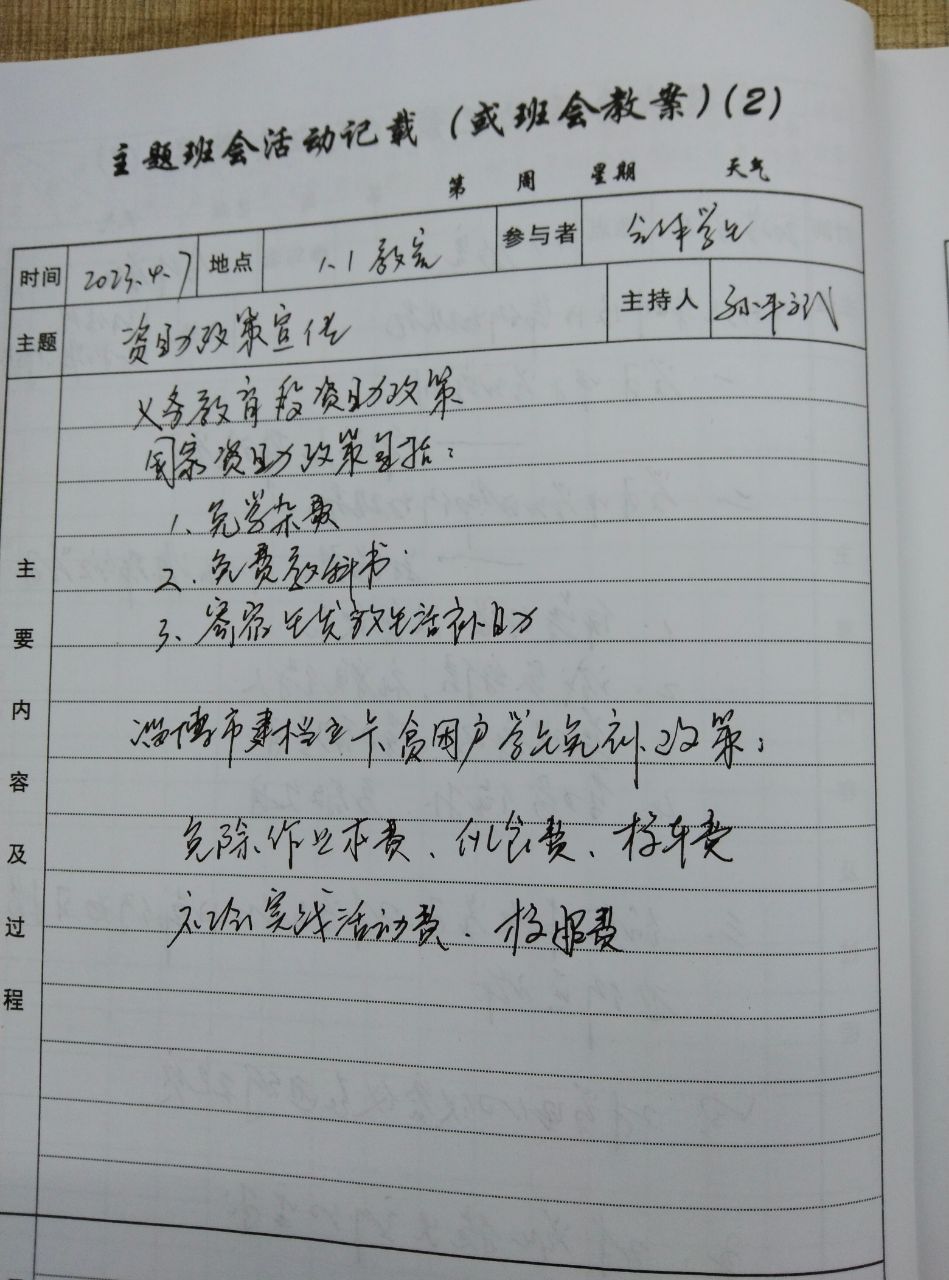 主题班会活动记载（或班会教案）（2）
第 周 星期 天气
时间 2023.4.7 地点 1.1教室 参与者 全体学生
主题 资助政策宣传 主持人
主要内容及过程
义务教育段资助政策
国家资助政策包括：
1、免学杂费
2、免费教科书
3、寄宿生发放生活补助
淄博市建档立卡贫困户学生免补政策：
免除作业本费、伙食费、校车费
社会实践活动费、校服费